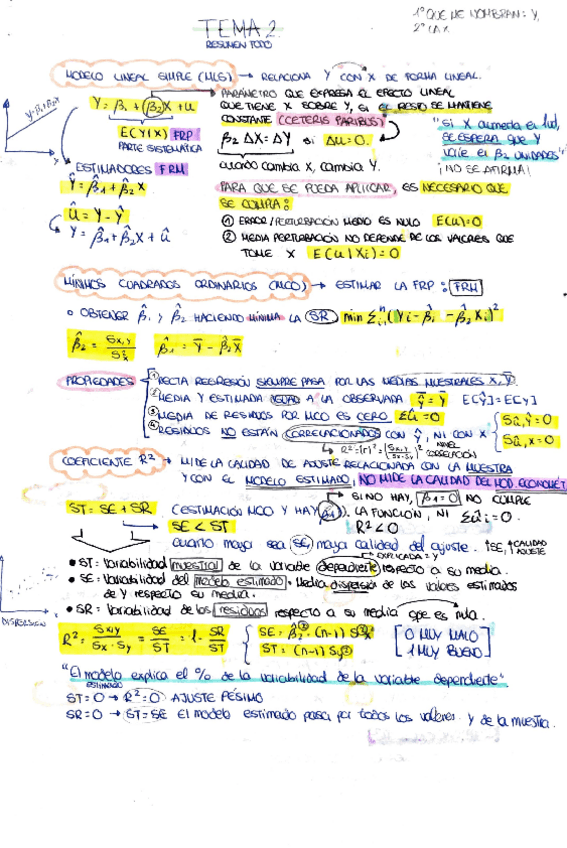 1º QUE ME NOMBRAN = Y,
2º LA X
TEMA 2
RESUMEN TODO
MODELO LINEAL SIMPLE (MLS) → RELACIONA Y CON X DE FORMA LINEAL.
Y = β₁ + β₂X + u
PARÁMETRO QUE EXPRESA EL EFECTO LINEAL
QUE TIENE X SOBRE Y, SI EL RESTO SE MANTIENE
CONSTANTE (CETERIS PARIBUS)
E(Y|X) FRP
PARTE SISTEMÁTICA
β₂ ΔX = ΔY si Δu = 0.
cuando cambia X, cambia Y.
"Si X aumenta en 1ud,
SE ESPERA que Y
varíe en β₂ UNIDADES"
¡NO SE AFIRMA!
ESTIMADORES FRM
Ŷ = β̂₁ + β̂₂ X
û = Y - Ŷ
Y = β̂₁ + β̂₂ X + û
PARA QUE SE PUEDA APLICAR, ES NECESARIO QUE
SE CUMPLA:
① ERROR/PERTURBACIÓN MEDIO ES NULO E(u)=0
② MEDIA PERTURBACIÓN NO DEPENDE DE LOS VALORES QUE
TOME X E(u|Xi) = 0
MÍNIMOS CUADRADOS ORDINARIOS (MCO) → ESTIMAR LA FRP: FRM
○ OBTENER β̂₁ y β̂₂ HACIENDO MÍNIMA LA SR min Σⁿᵢ₌₁ (Yi - β̂₁ - β̂₂ Xi)²
β̂₂ = Sx,y / S²x β̂₁ = Ȳ - β̂₂ X̄
PROPIEDADES
① RECTA REGRESIÓN SIEMPRE PASA POR LAS MEDIAS MUESTRALES X̄, Ȳ.
② MEDIA Y ESTIMADA IGUAL A LA OBSERVADA Ŷ = Ȳ E[Ŷ] = E[Y]
③ MEDIA DE RESIDUOS POR MCO ES CERO Σû = 0
④ RESIDUOS NO ESTÁN CORRELACIONADOS CON Ŷ, NI CON X
Sû,Ŷ = 0
Sû,x = 0
NIVEL CORRELACIÓN
COEFICIENTE R² → MIDE LA CALIDAD DE AJUSTE RELACIONADA CON LA MUESTRA
Y CON EL MODELO ESTIMADO, NO MIDE LA CALIDAD DEL MOD ECONOMÉT
ST = SE + SR (ESTIMACIÓN MCO Y HAY β₁). LA FUNCIÓN, NI Σûi = 0.
SI NO HAY, β₁ = 0 NO CUMPLE
SE < ST R² < 0
cuanto mayor sea SE, mayor calidad del ajuste. ↑SE, ↑CALIDAD AJUSTE
EXPLICADA = Y
• ST = Variabilidad muestral de la variable dependiente respecto a su media.
• SE = Variabilidad del modelo estimado. Media dispersión de los valores estimados
de Y respecto su media.
• SR = Variabilidad de los residuos respecto a su media que es nula.
DISPERSIÓN
R² = Sxy / Sx · Sy = SE / ST = 1 - SR / ST
SE = β̂₂² · (n-1) S²x
ST = (n-1) Sy²
0 MUY MALO
1 MUY BUENO
"El modelo explica el % de la variabilidad de la variable dependiente".
ESTIMADO
ST = 0 → R² = 0 AJUSTE PÉSIMO
SR = 0 → ST = SE El modelo estimado pasa por todos los valores Y de la muestra.